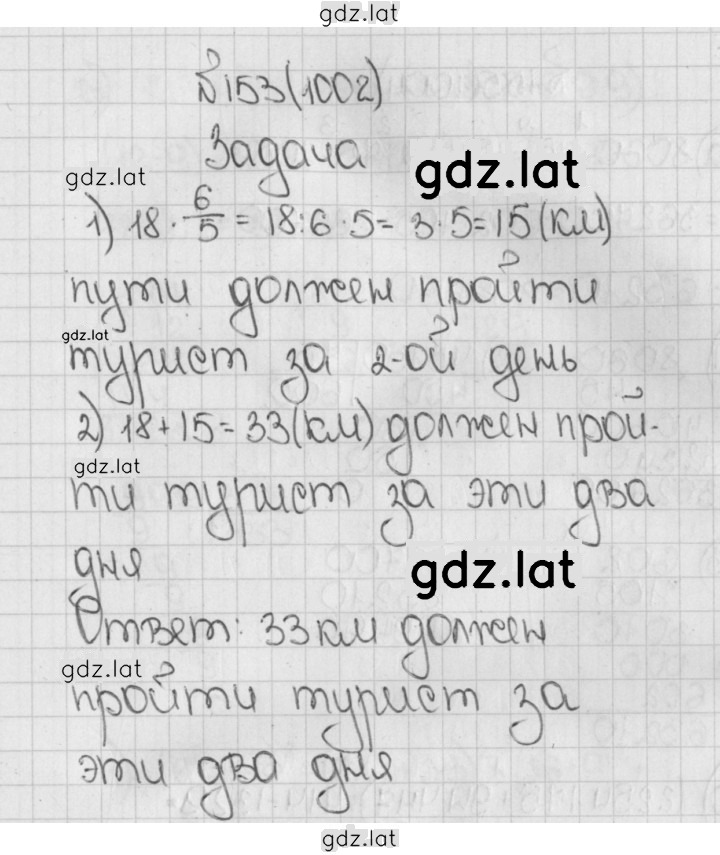 gdz.lat
№153(1002)
Задача
gdz.lat
gdz.lat
1) 18 · 6/5 = 18:6·5= 3·5=15(км)
пути должен пройти
gdz.lat
турист за 2-ой день
2) 18+15=33(км) должен прой-
gdz.lat
ти турист за эти два
дня
gdz.lat
Ответ: 33 км должен
gdz.lat
пройти турист за
эти два дня
gdz.lat